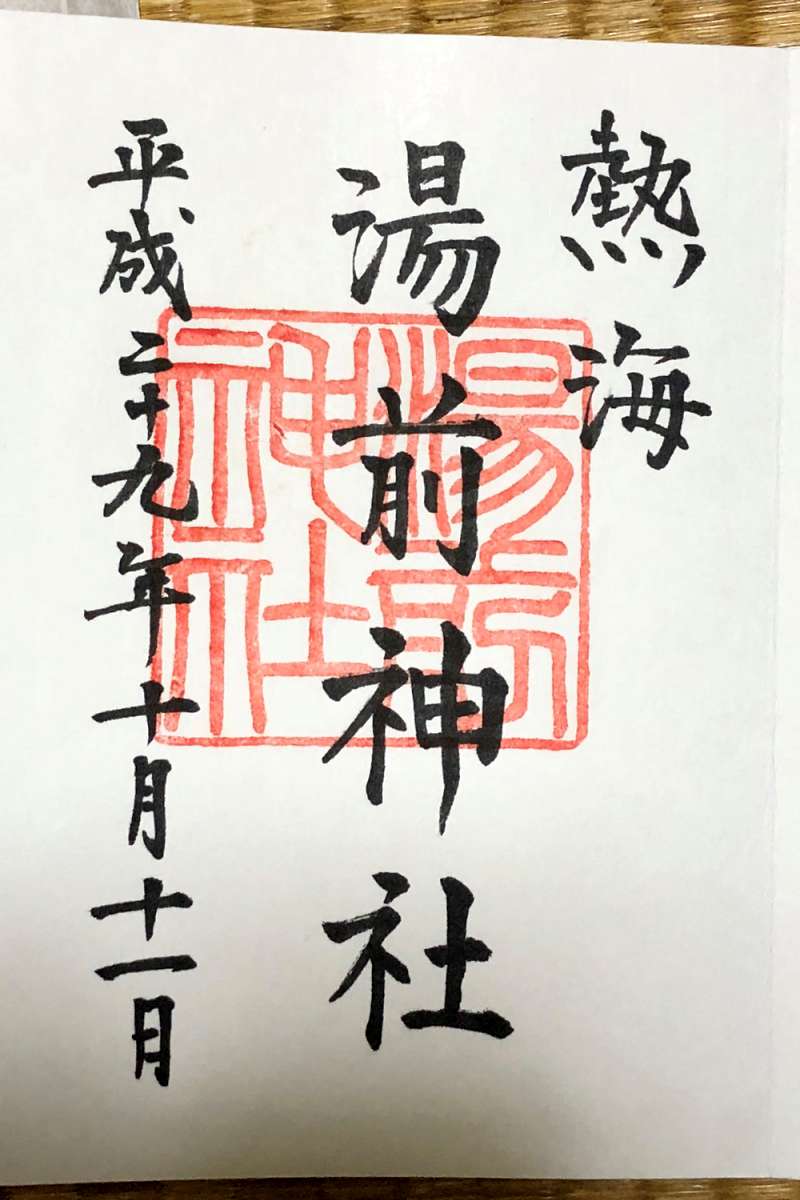 熱海
湯前神社
湯前神社
平成二十九年十月十一日